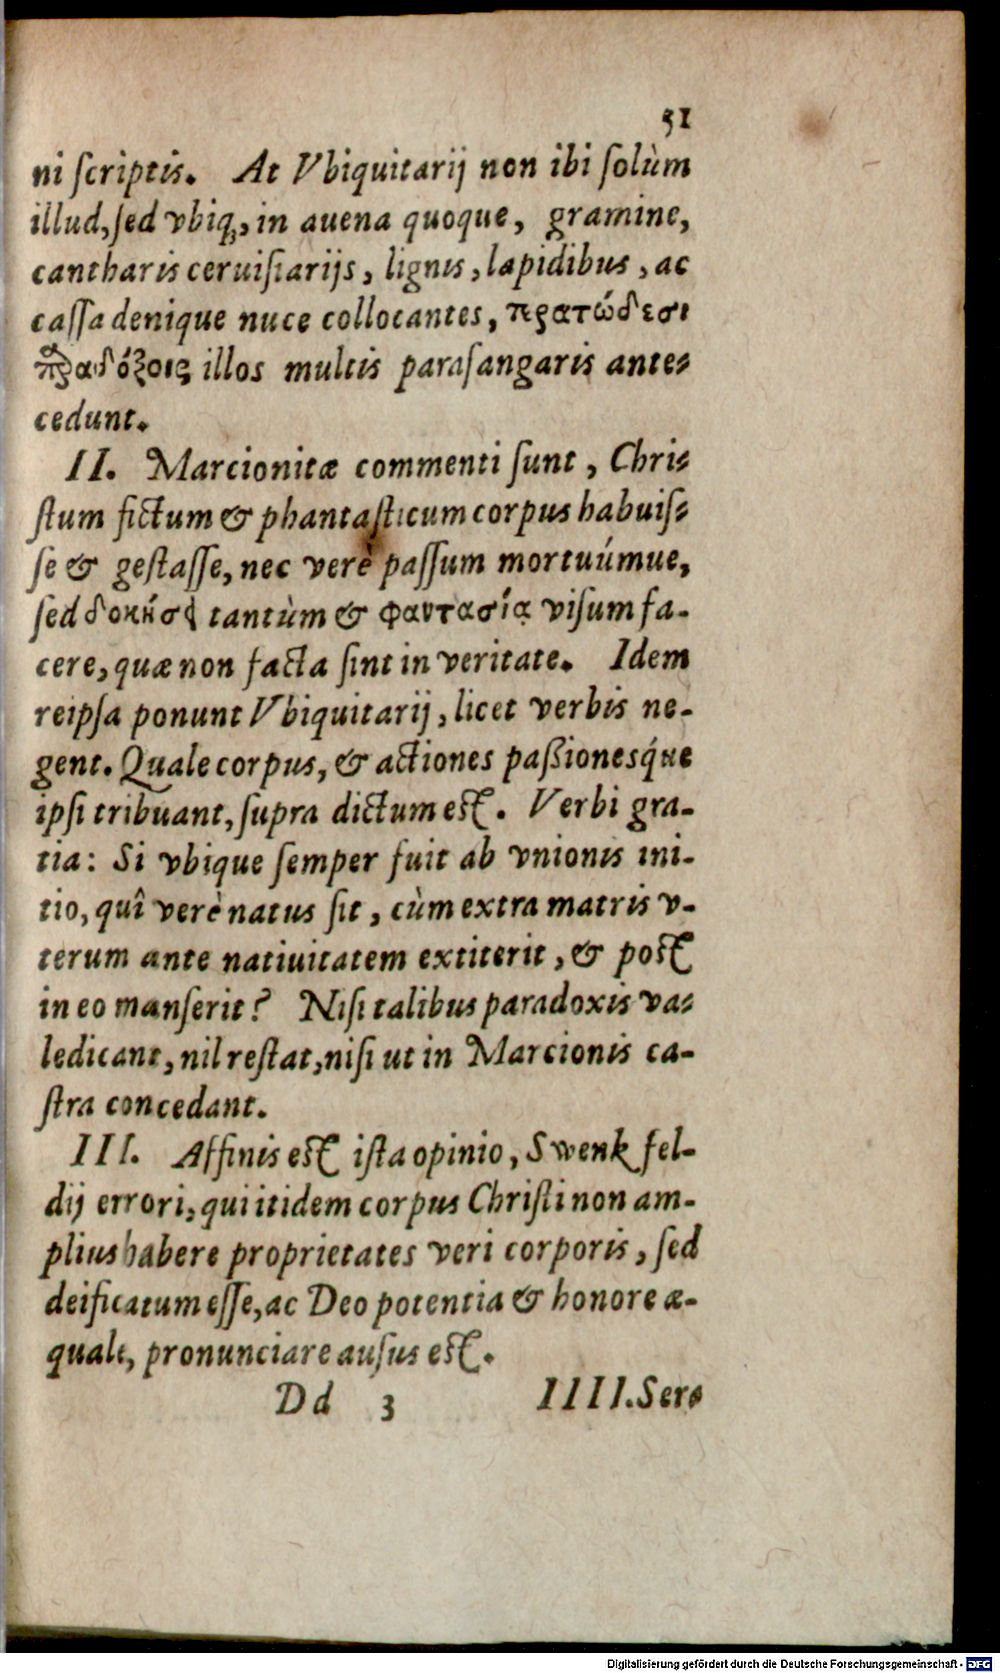 51
ni ſcriptis. At Vbiquitarij non ibi ſolùm
illud, ſed vbiq́;, in auena quoque, gramine,
cantharis ceruiſiarijs, lignis, lapidibus, ac
caſſa denique nuce collocantes, τερατώδεσι
παραδόξοις illos multis paraſangaris ante-
cedunt.
II. Marcionitæ commenti ſunt, Chri-
ſtum fictum & phantaſticum corpus habuiſ-
ſe & geſtaſſe, nec verè paſſum mortuúmue,
ſed δοκήσει tantùm & φαντασίᾳ viſum fa-
cere, quæ non facta ſint in veritate. Idem
reipſa ponunt Vbiquitarij, licet verbis ne-
gent. Quale corpus, & actiones paßionesq́ue
ipſi tribuant, ſupra dictum eſt. Verbi gra-
tia: Si vbique ſemper fuit ab vnionis ini-
tio, quî verè natus ſit, cùm extra matris v-
terum ante natiuitatem extiterit, & poſt
in eo manſerit? Niſi talibus paradoxis va-
ledicant, nil reſtat, niſi ut in Marcionis ca-
ſtra concedant.
III. Affinis eſt iſta opinio, Swenkfel-
dij errori, qui itidem corpus Chriſti non am-
plius habere proprietates veri corporis, ſed
deificatum eſſe, ac Deo potentia & honore æ-
quale, pronunciare auſus eſt.
Dd 3 IIII. Ser-
Digitalisierung gefördert durch die Deutsche Forschungsgemeinschaft - DFG